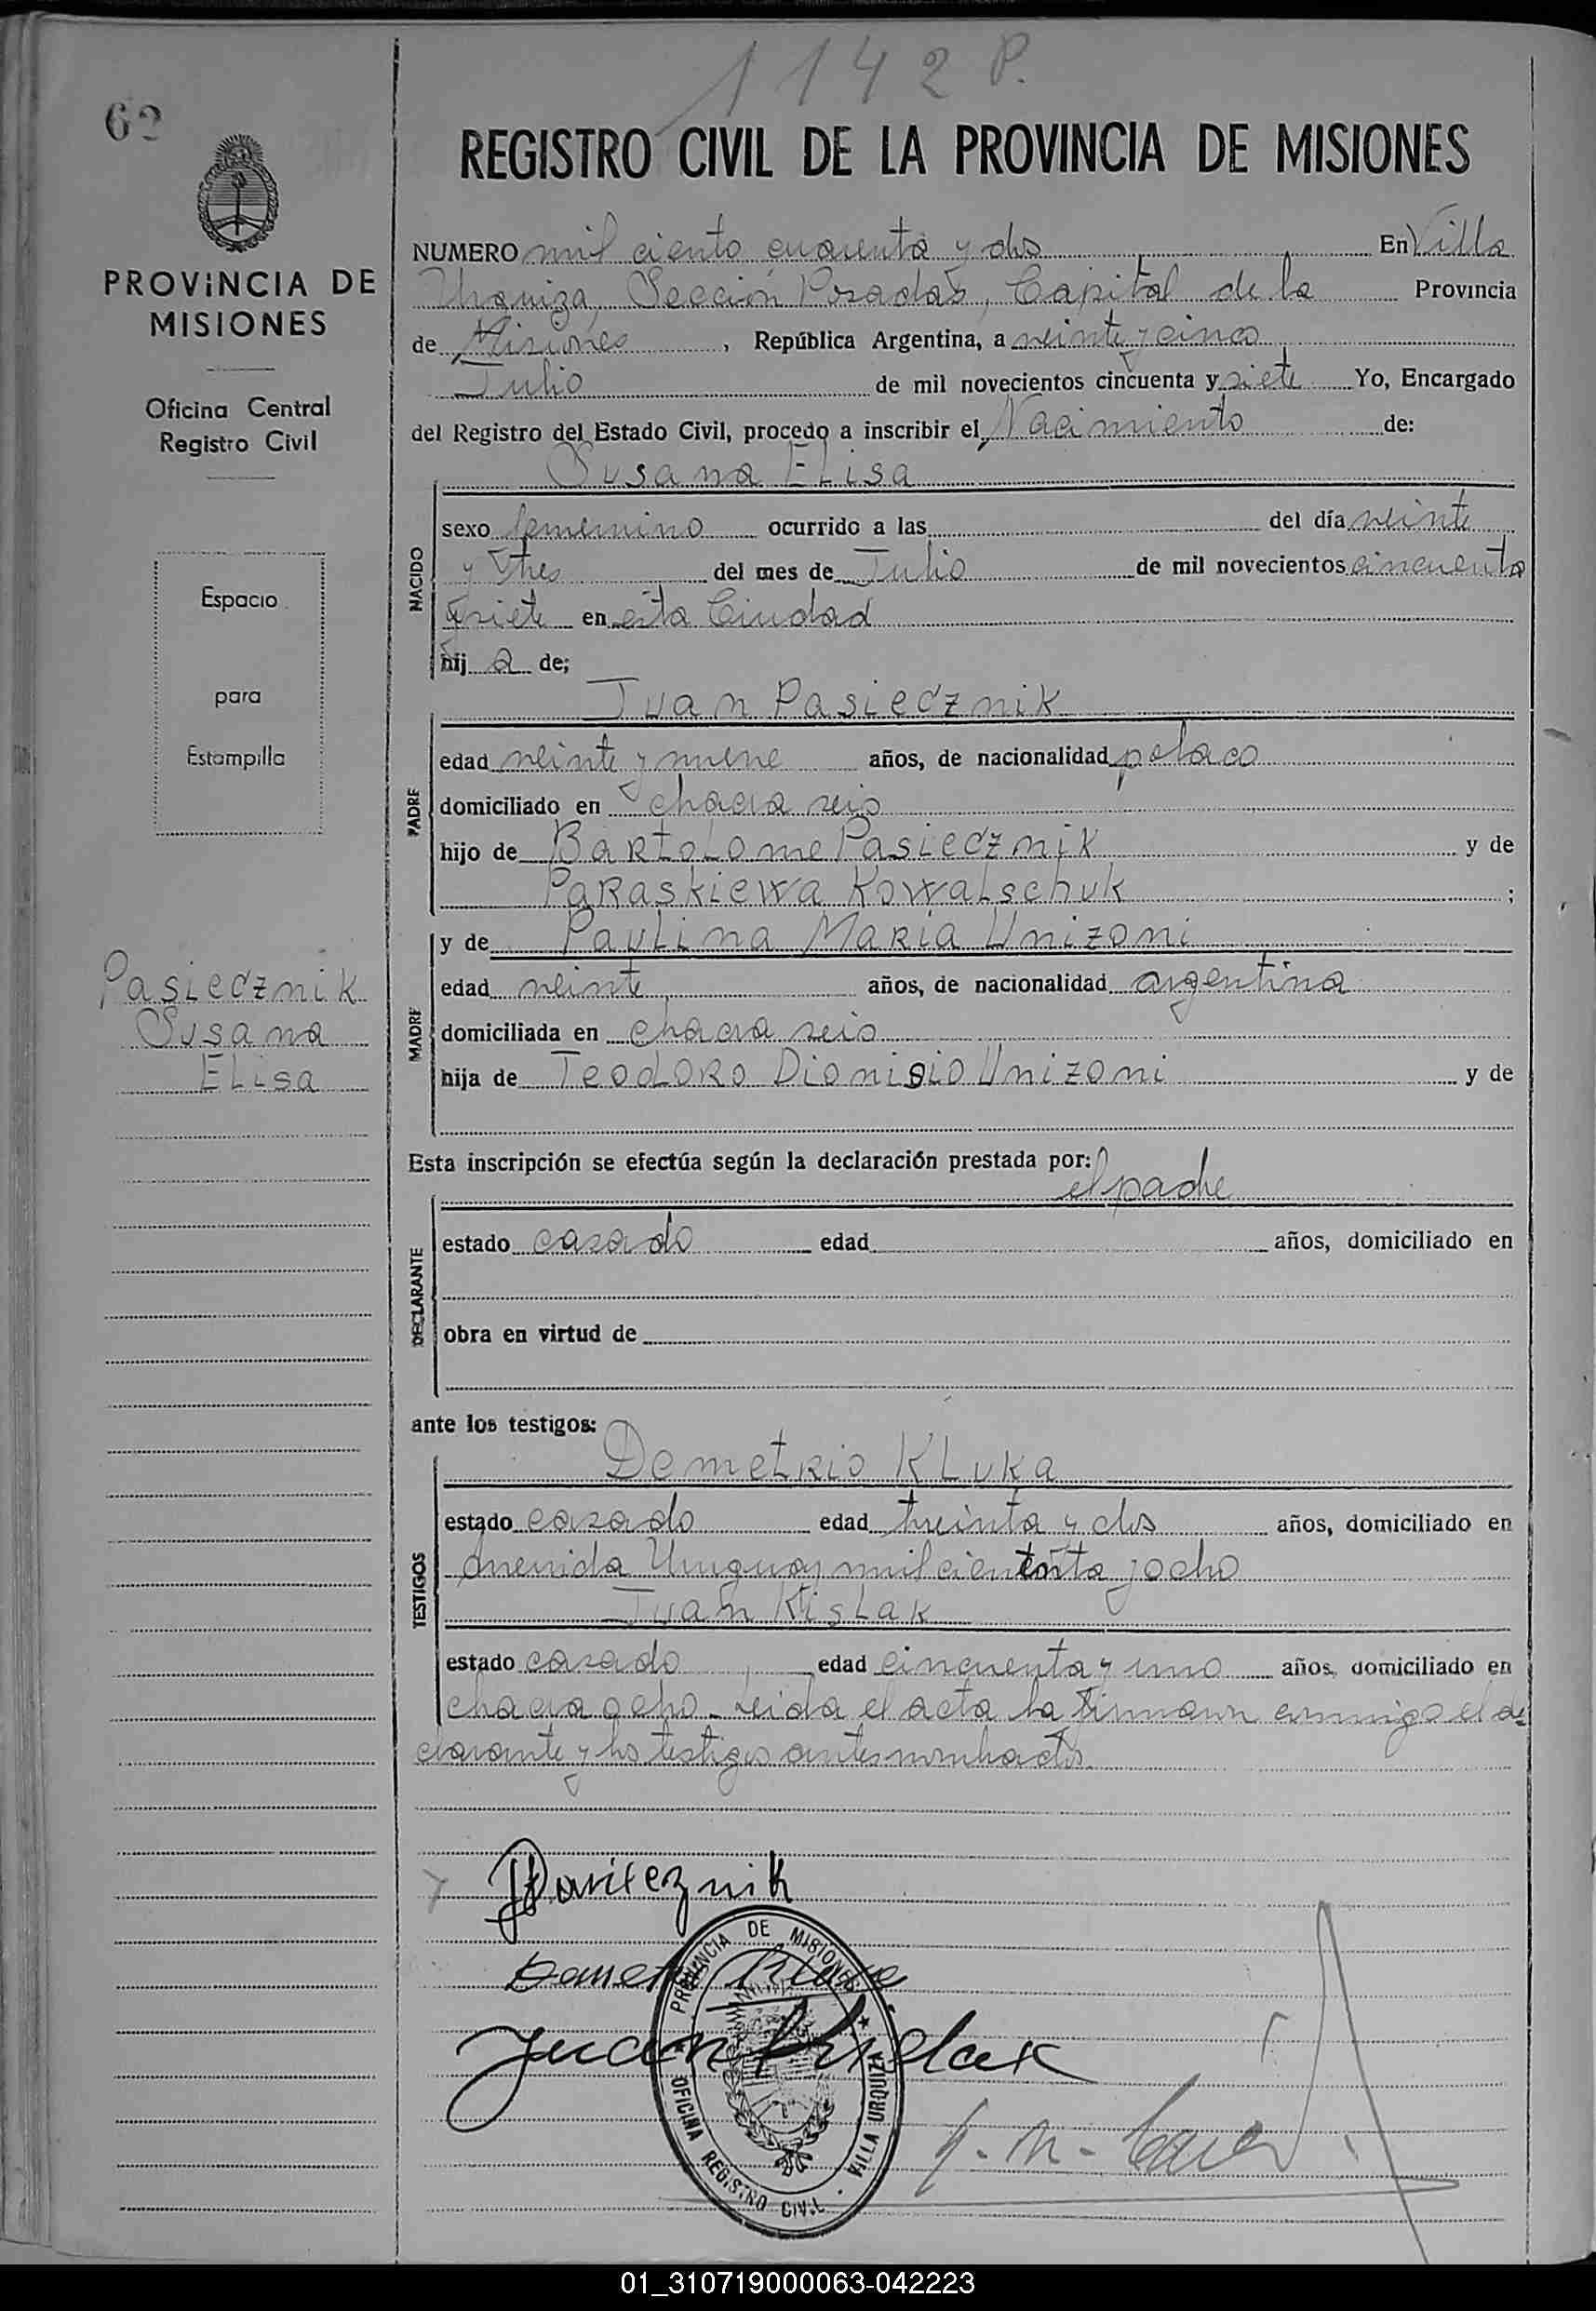 1142 P.
62
REGISTRO CIVIL DE LA PROVINCIA DE MISIONES
PROVINCIA DE
MISIONES
Oficina Central
Registro Civil
Espacio
para
Estampilla
Pasiecznik
Susana
Elisa
NUMERO mil ciento cuarenta y dos En Villa
Urquiza, Sección Posadas, Capital de la Provincia
de Misiones, República Argentina, a veinte y cinco
Julio de mil novecientos cincuenta y siete Yo, Encargado
del Registro del Estado Civil, procedo a inscribir el Nacimiento de:
Susana Elisa
NACIDO
sexo femenino ocurrido a las del día veinte
y tres del mes de Julio de mil novecientos cincuenta
y siete en esta Ciudad
hij a de;
Juan Pasiecznik
PADRE
edad veinte y nueve años, de nacionalidad polaco
domiciliado en chacra seis
hijo de Bartolome Pasiecznik y de
Paraskiewa Kowalschuk ;
y de Paulina Maria Unizoni
MADRE
edad veinte años, de nacionalidad argentina
domiciliada en chacra seis
hija de Teodoro Dionisio Unizoni y de
Esta inscripción se efectúa según la declaración prestada por:
el padre
DECLARANTE
estado casado edad años, domiciliado en
obra en virtud de
ante los testigos:
Demetrio Kluka
TESTIGOS
estado casado edad treinta y dos años, domiciliado en
Avenida Uruguay mil y ocho
Juan Kislak
estado casado, edad cincuenta y uno años, domiciliado en
chacra ocho. Leida el acta la firmaron conmigo el de-
clarante y los testigos antes nombrados.
Pasiecznik
Juan Kislak
PROVINCIA DE MISIONES
OFICINA REGISTRO CIVIL - VILLA URQUIZA
01_310719000063-042223